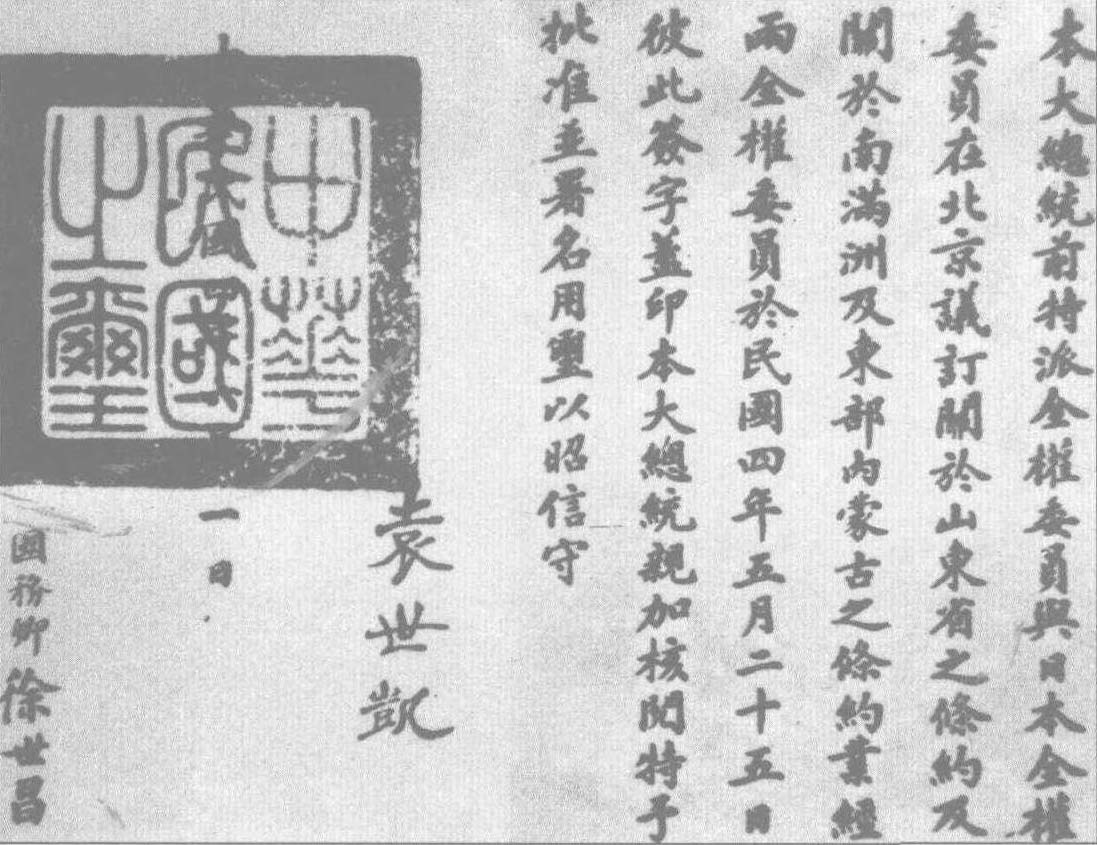 本大總統前特派全權委員與日本全權
委員在北京議訂關於山東省之條約及
關於南滿洲及東部內蒙古之條約業經
兩全權委員於民國四年五月二十五日
彼此簽字蓋印本大總統親加核閱特予
批准並署名用璽以昭信守
袁世凱
中華
民國
之璽
一日
國務卿徐世昌